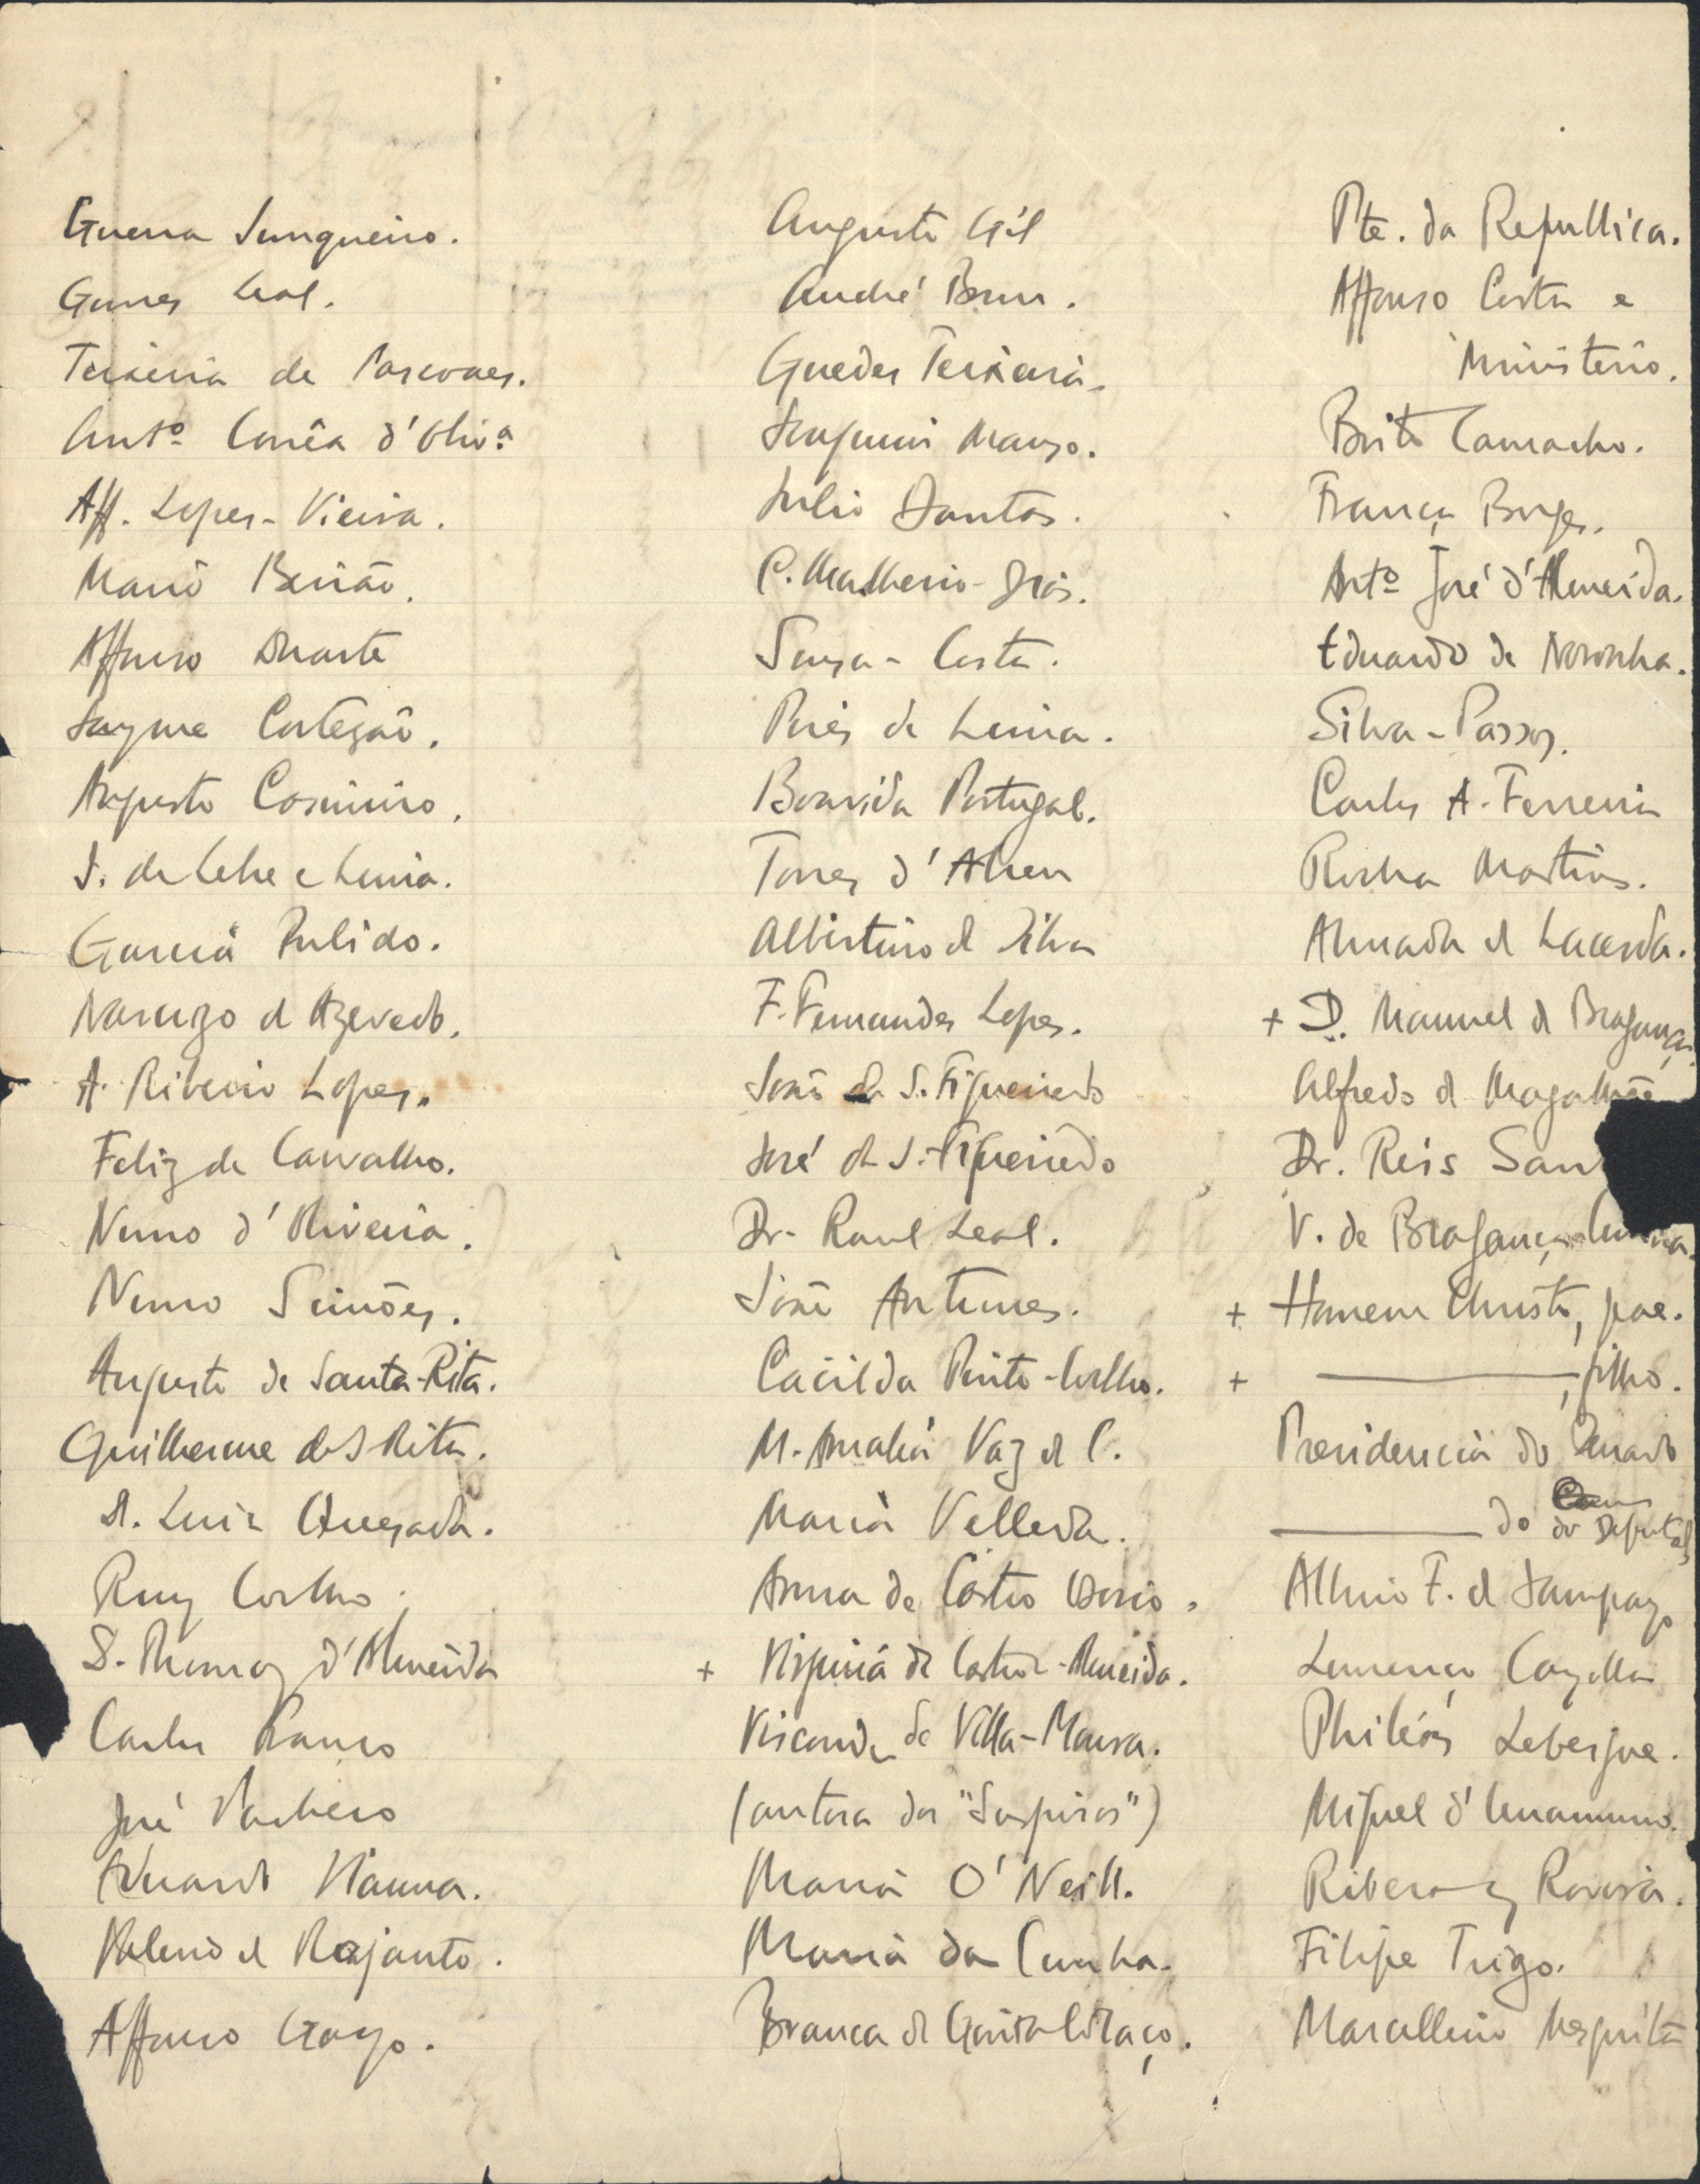 Guerra Junqueiro.
Gomes Leal.
Teixeira de Pascoaes.
Antº Corrêa d'Olivª
Aff. Lopes-Vieira.
Mario Beirão.
Affonso Duarte
Jayme Cortesão.
Augusto Casimiro.
J. de Lebre e Lima.
Garcia Pulido.
Narcizo d'Azevedo.
A. Ribeiro Lopes.
Feliz de Carvalho.
Nuno d'Oliveira.
Nuno Simões.
Augusto de Santa-Rita.
Guilherme de S Rita.
D. Luiz Quesada.
Ruy Coelho.
D. Thomaz d'Almeida
Carlos Franco
José Pacheco
Eduardo Vianna.
Valerio de Rajanto.
Affonso Gayo.
Augusto Gil
André Brun.
Guedes Teixeira.
Joaquim Manso.
Julio Dantas.
C. Malheiro-Dias.
Souza-Costa.
Pires de Lima.
Boavida Portugal.
Torres d'Abreu
Albertino de Silva
F. Fernandes Lopes.
João de S. Figueiredo
José de S. Figueiredo
Dr. Raul Leal.
João Antunes.
Cacilda Pinto-Coelho.
M. Amalia Vaz de C.
Maria Velleda.
Anna de Castro Osorio.
+ Virginia de Castro e Almeida.
Visconde de Villa-Moura.
(autora dos "Suspiros")
Maria O'Neill.
Maria da Cunha.
Branca de Gonta Colaço.
Pte. da Republica.
Affonso Costa e
Ministerio.
Brito Camacho.
França Borges.
Antº José d'Almeida.
Eduardo de Noronha.
Silva-Passos.
Carlos A. Ferreira
Rocha Martins.
Almada de Lacerda.
+ D. Manuel de Bragança.
Alfredo de Magalhãe
Dr. Reis San
V. de Bragança
+ Homem Christo, pae.
+ ———, filho.
Presidencia do Senado
——— do dos Deputados
Albino F. de Sampayo
Lourenço Cayolla
Philéas Lebesgue.
Miguel d'Unamuno.
Ribera y Rovira.
Filipe Trigo.
Marcellino Mesquita